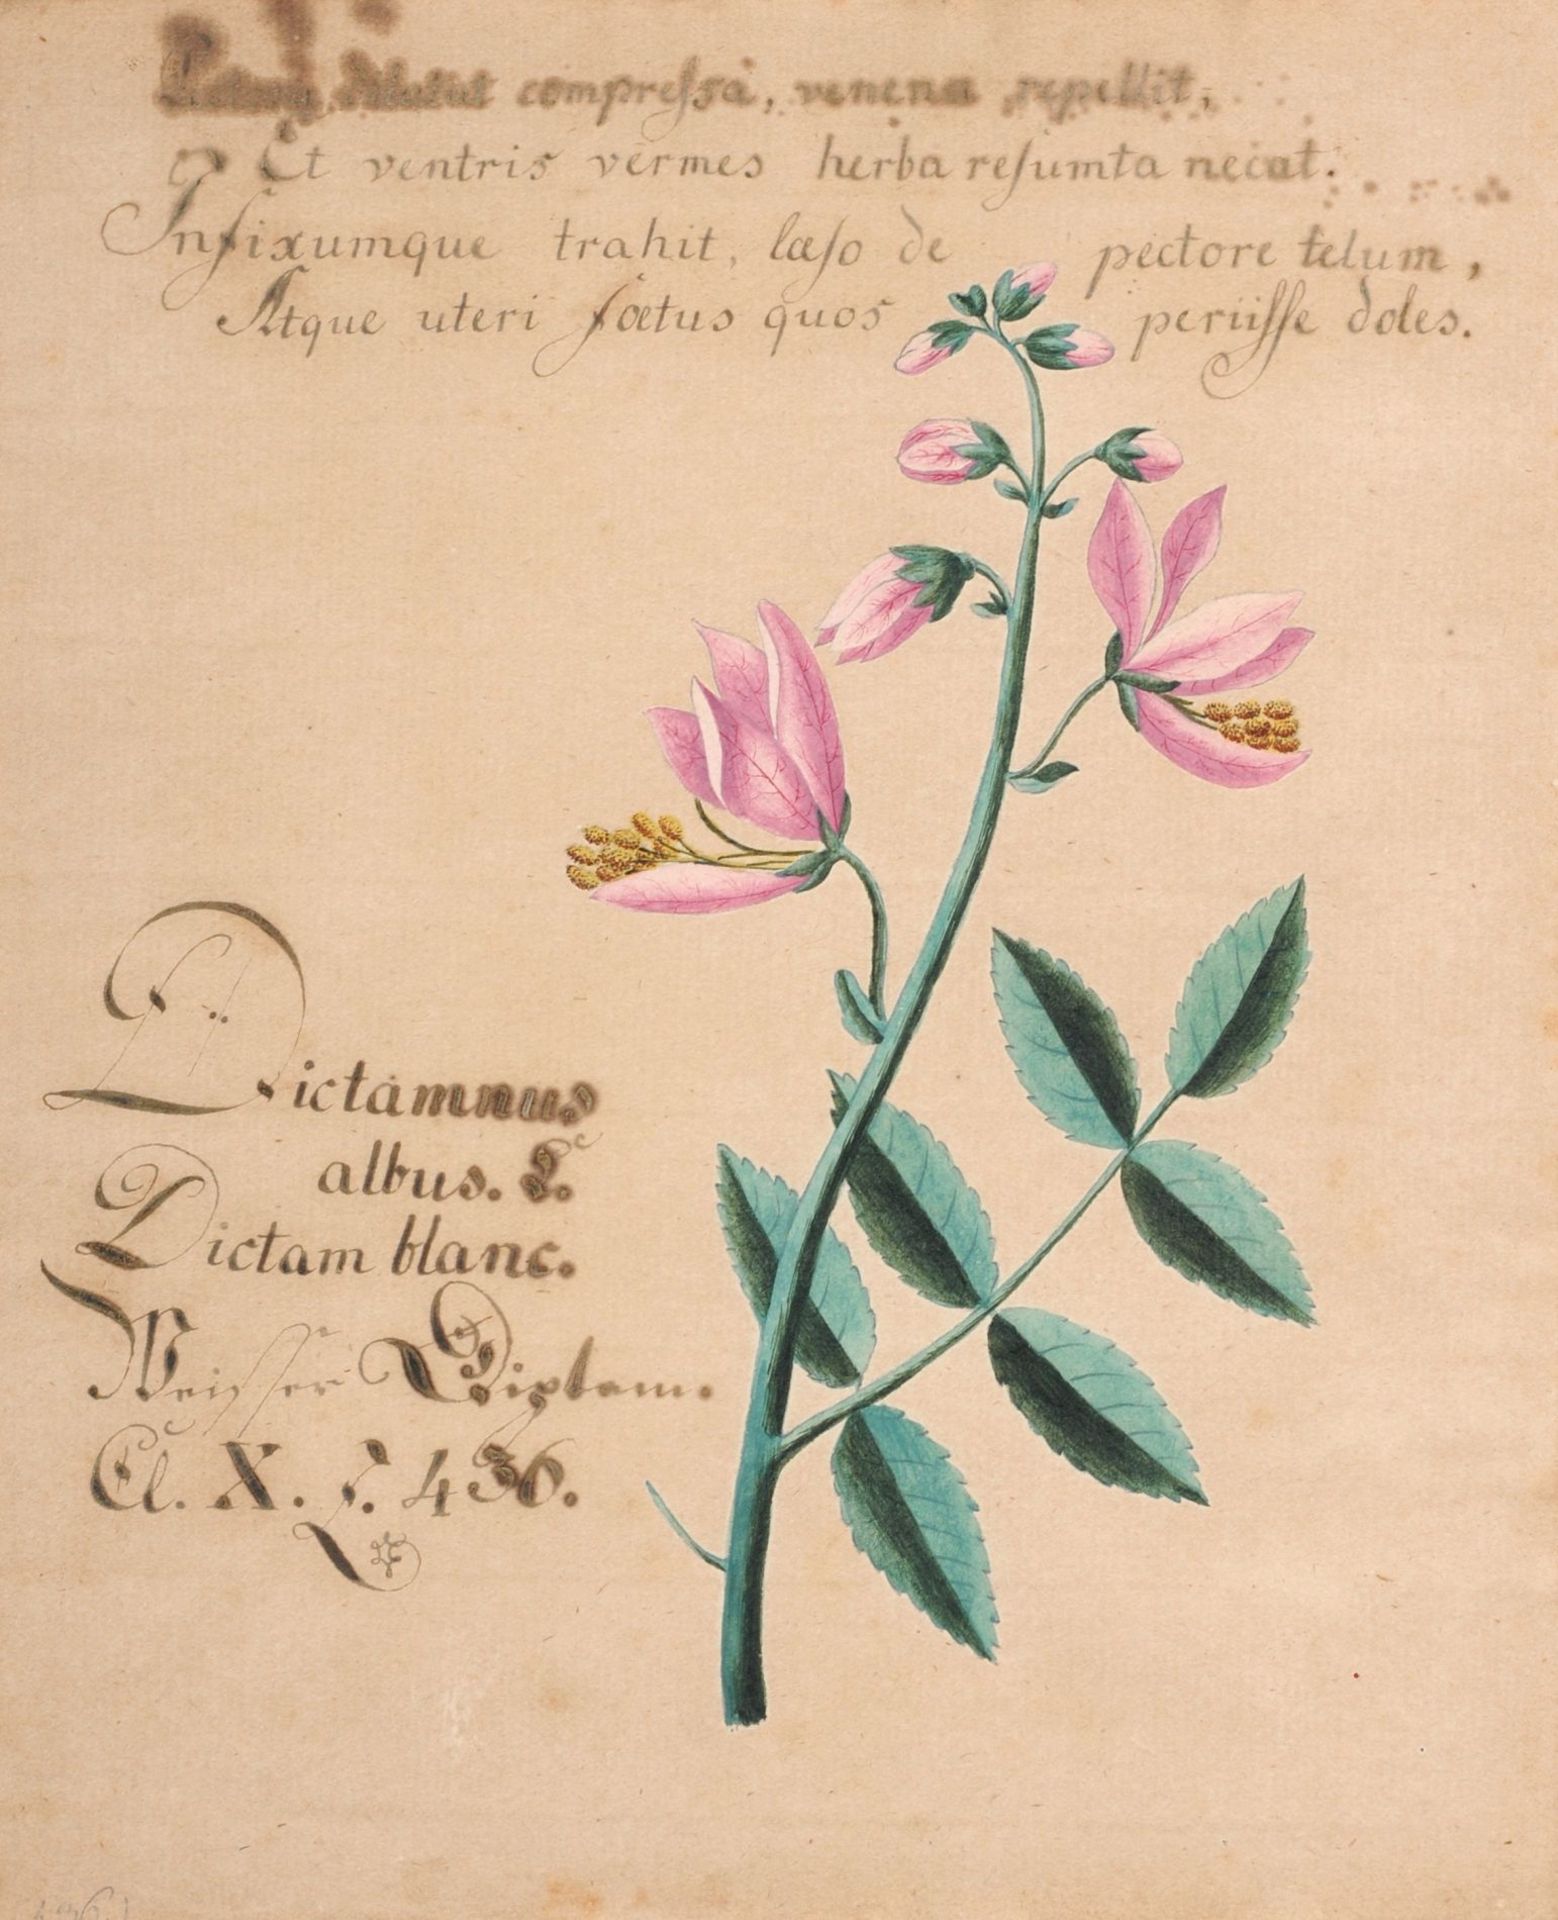 compreſsa, venena repellit,
Et ventris vermes herba reſumta necat.
Infixumque trahit, læſo de pectore telum,
Atque uteri fœtus quos periiſſe doles.
Dictamnus
albus. L.
Dictam blanc.
Weisser Diptam.
Cl. X. L. 436.